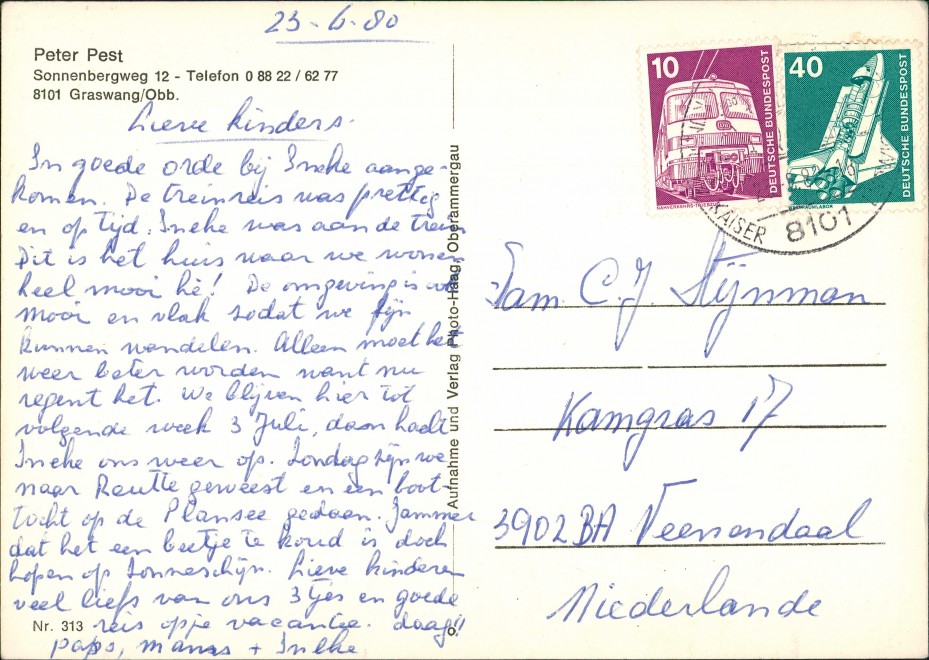 23-6-80
Peter Pest
Sonnenbergweg 12 - Telefon 0 88 22 / 62 77
8101 Graswang/Obb.
Lieve kinders.
In goede orde bij Ineke aange-
komen. De treinreis was prettig
en op tijd. Ineke was aan de trein
Dit is het huis waar we wonen
heel mooi hè! De omgeving is
mooi en vlak zodat we fijn
kunnen wandelen. Alleen moet het
weer beter worden want nu
regent het. We blijven hier tot
volgende week 3 Juli, dan haelt
Ineke ons weer op. Zondag zijn we
naar Reutte geweest en een boot-
tocht op de Plansee gedaan. Jammer
dat het een beetje te koud is doch
hopen op Zonneschijn. Lieve kinderen
veel liefs van ons 3tjes en goede
reis op je vacantie. daag!!
paps, mams + Ineke
Nr. 313
Aufnahme und Verlag Photo-Haag, Oberammergau
10
DEUTSCHE BUNDESPOST
40
DEUTSCHE BUNDESPOST
KAISER
8101
Fam. C.J. Stijnman
Kamgras 17
3902 BA Veenendaal
Niederlande